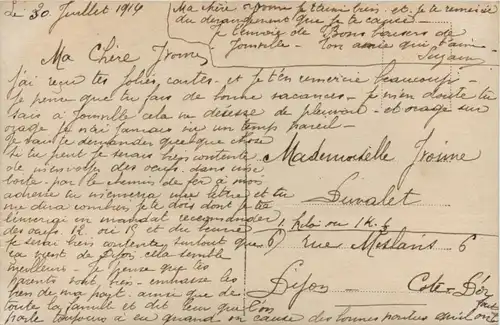 Le 30 Juillet 1914
Ma chère Yvonne je t'aime bien et je te remercie
du dérangement que je te cause
je t'envoie de Bons baisers de
Joinville ton amie qui t'aime
Suzanne
Ma Chère Yvonne
J'ai reçu tes jolies cartes et je t'en remercie beaucoup
Je pense que tu fais de bonne vacances je m'en doute tu
sais à Joinville cela ne désesse de pleuvoir et orage sur
orage je n'ai jamais vu un temps pareil
Je vais te demander quelque chose
si tu peut je serais très contente
de m'envoyer des oeufs dans une
boite par le chemin de fer à mon
adresse tu m'enverra une lettre et tu
me dira combien je te dois dont je te
l'enverai en mandat recommander
des oeufs 12 ou 18 et du beurre
je serai bien contente surtout que
ça vient de Dijon cela semble
meilleurs Je pense que tes
parents sont bien embrasse les
bien de ma part ainsi que
toute ta famille et dit leur que l'on
parle toujours à eu quand on cause des bonnes
Mademoiselle Yvonne
Duvalet
1 kilo ou 1 K ½
6 rue Meslanis 6
Dijon
Côte-d'Or